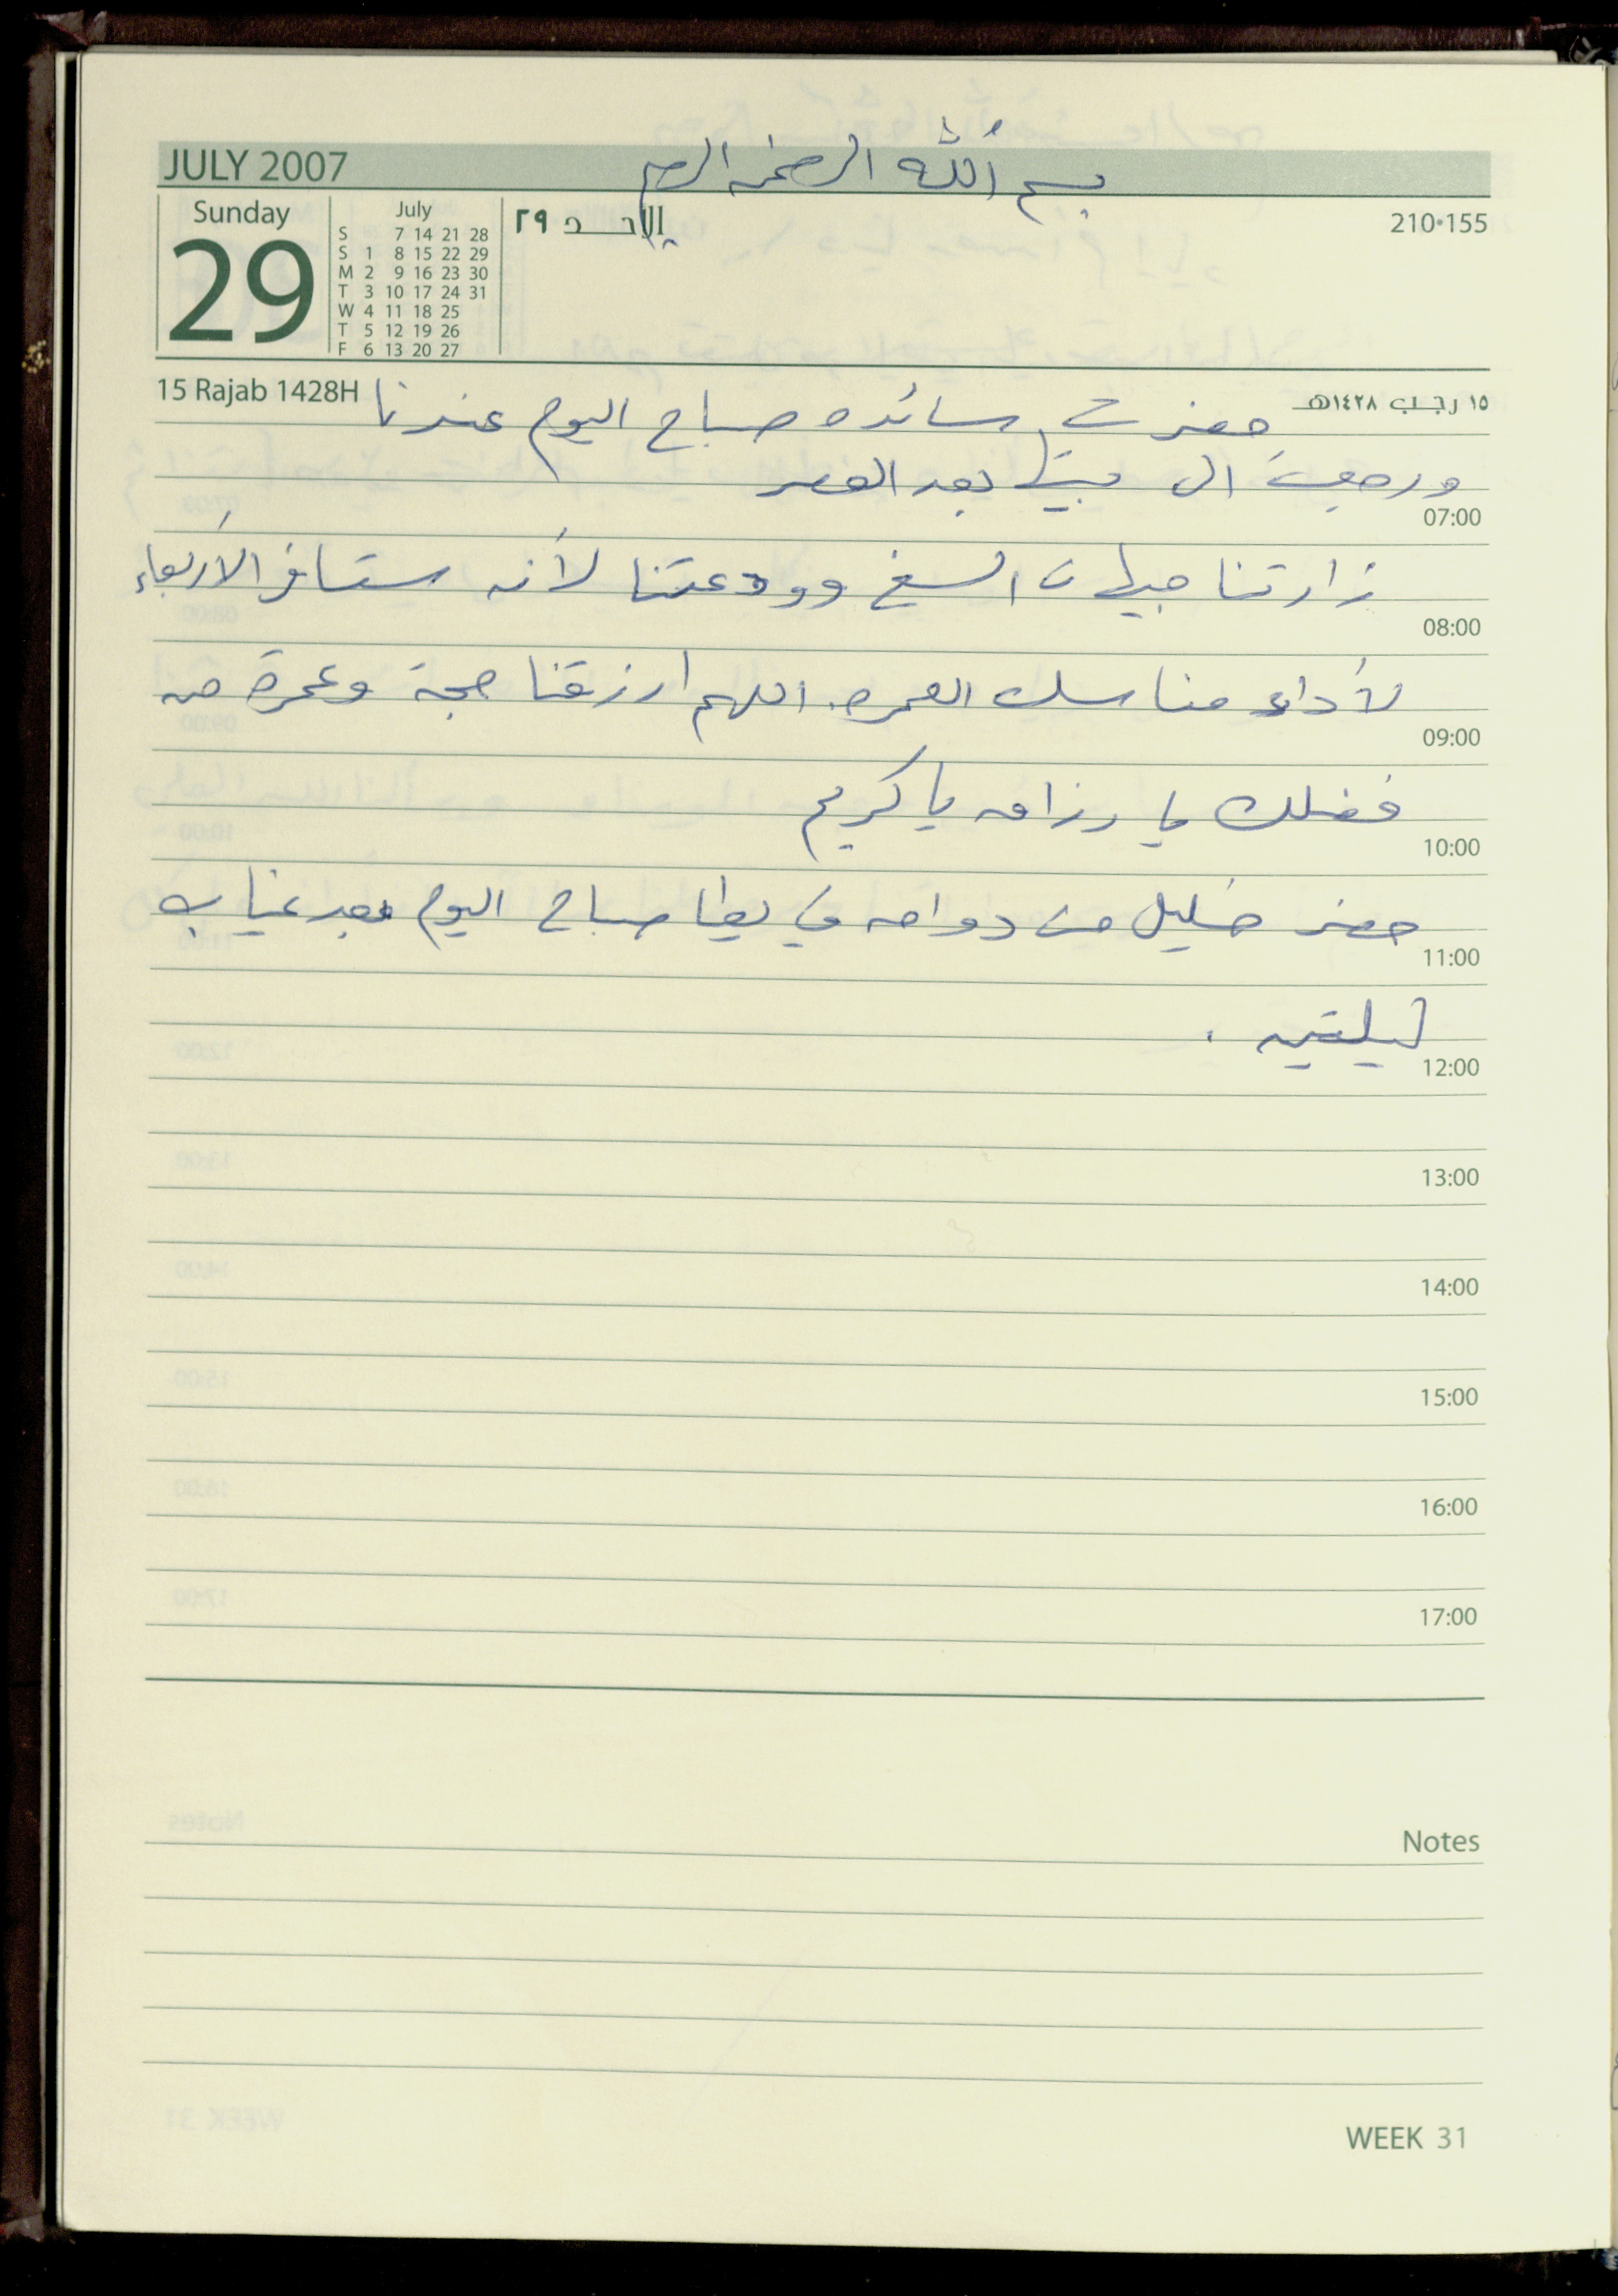 بسم الله الرحمن الرحيم
JULY 2007
Sunday
29
July
S 7 14 21 28
S 1 8 15 22 29
M 2 9 16 23 30
T 3 10 17 24 31
W 4 11 18 25
T 5 12 19 26
F 6 13 20 27
الأحد ٢٩
210•155
15 Rajab 1428H
١٥ رجب ١٤٢٨هـ
حضرت سائده صباح اليوم عندنا
ورجعت الى بيتها بعد العصر
07:00
زارتنا جيهان الشيخ وودعتنا لأنه ستسافر الأربعاء
08:00
لأداء مناسك العمره. اللهم ارزقنا حجة وعمرة من
09:00
فضلك يا رزاق يا كريم
10:00
حضر خليل من دوامه في يطا صباح اليوم بعد غياب
11:00
ليلتين .
12:00
13:00
14:00
15:00
16:00
17:00
Notes
WEEK 31